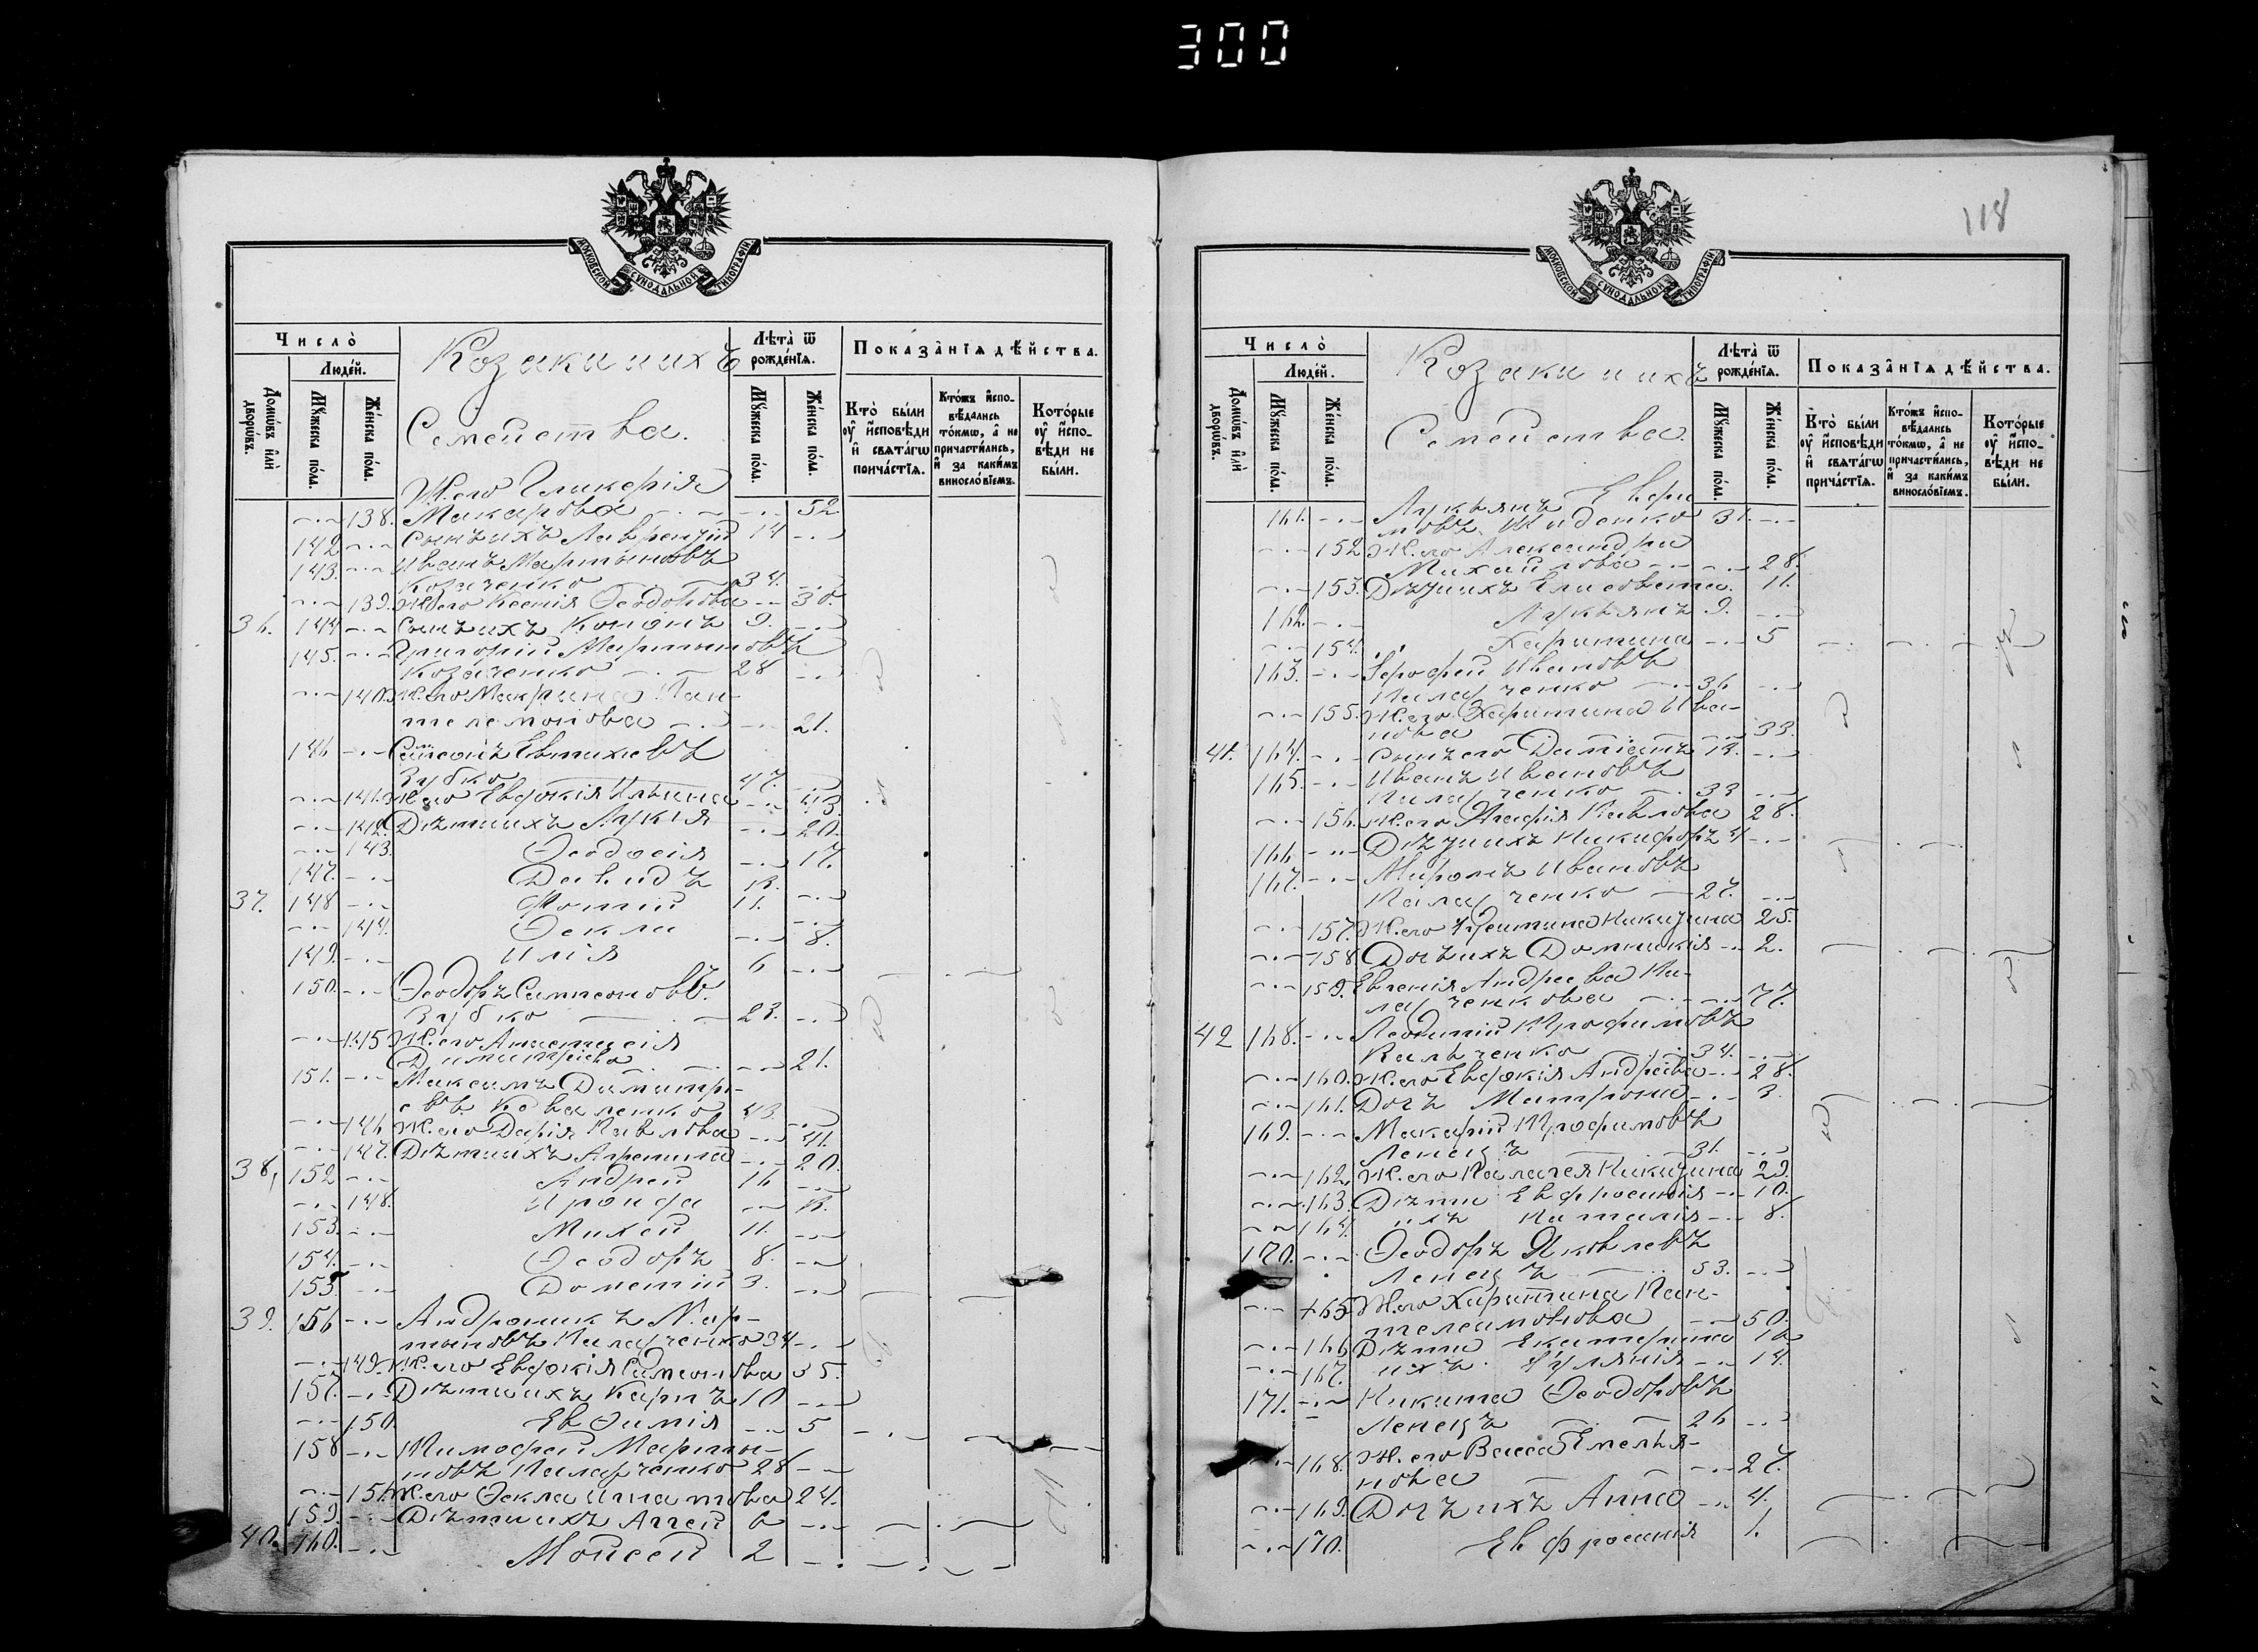 300
118
МОСКОВСКОЙ СУНОДАЛЬНОЙ ТИПОГРАФІИ
Число̀
Людéй.
Домѡ́въ и҆лѝ дворѡ́въ.
Мꙋ́жеска по́ла.
Же́нска по́ла.
Козаки и ихъ
Семейства.
Лѣта̀ ѿ рожде́нїѧ.
Мꙋ́жеска по́ла.
Же́нска по́ла.
Показа̑нїѧ дѣ́йства.
Кто̀ бы́ли ᲂу҆ и҆сповѣ́ди и҆ свѧта́гѡ прича́стїѧ.
Кто́жъ и҆спо-вѣ́дались то́кмѡ, а҆ не причасти́лись, и҆ за каки́мъ винословїемъ.
Кото́рые ᲂу҆ и҆спо-вѣ́ди не бы́ли.
Ж. его Гликерія
138. Макарова 52
142 Сынъ ихъ Лаврентій 14
143. Иванъ Мартыновъ
Козаченко 34.
139. Ж. его Ксенія Ѳеодорова 30.
36. 144 Сынъ ихъ Кононъ 9.
145. Григорій Мартыновъ
Козаченко 28
140. Ж. его Макрина Пан-
телемонова 21.
146 Симеонъ Евтихіевъ
Зубко 47.
141. Ж. его Евдокія Ильина 43.
142. Дѣти ихъ Лукія 20.
143. Ѳеодосія 17.
147. Давидъ 13.
37. 148 Фотій 11.
144. Ѳекла 8.
149. Илія 6
150. Ѳеодоръ Симеоновъ
Зубко 23.
145 Ж. его Анастасія
Димитріева 21.
151. Максимъ Димитрі-
евъ Коваленко 43.
146 Ж. его Дарія Павлова 41.
147. Дѣти ихъ Агрепина 20.
38, 152 Андрей 16
148. Ироида 13.
153. Михей 11.
154. Ѳеодоръ 8.
155. Дометій 3.
39. 156 Андроникъ Мар-
тыновъ Паларченко 34
149. Ж. его Евдокія Симеонова 35.
157. Дѣти ихъ Карпъ 10
150. Евѳимія 5
158 Тимофей Марты-
новъ Паларченко 28
151. Ж. его Ѳекла Игнатова 24.
159. Дѣти ихъ Аггей 6
40. 160. Мойсей 2
Число̀
Людéй.
Домѡ́въ и҆лѝ дворѡ́въ.
Мꙋ́жеска по́ла.
Же́нска по́ла.
Козаки и ихъ
Семейства.
Лѣта̀ ѿ рожде́нїѧ.
Мꙋ́жеска по́ла.
Же́нска по́ла.
Показа̑нїѧ дѣ́йства.
Кто̀ бы́ли ᲂу҆ и҆сповѣ́ди и҆ свѧта́гѡ прича́стїѧ.
Кто́жъ и҆спо-вѣ́дались то́кмѡ, а҆ не причасти́лись, и҆ за каки́мъ винословїемъ.
Кото́рые ᲂу҆ и҆спо-вѣ́ди не бы́ли.
161. Лукьянъ
новъ 31.
152 Ж. его Александра
Михайлова 28.
153. Дѣти ихъ Елисовета 11.
162. Лукьянъ 9.
154. Харитина 5
163. Ерофей Ивановъ
Паларченко 36
155. Ж. его Харитина Ива-
нова 33.
41. 164. Сынъ его Даміанъ 13.
165. Иванъ Ивановъ
Паларченко 33
156. Ж. его Агафія Павлова 28.
166 Дѣти ихъ Никифоръ 4
167. Миронъ Ивановъ
Паларченко 27.
157. Ж. его Христина Никитина 25.
158. Дочь ихъ Домникія 2.
159. Евгенія Андреева Па-
ларченкова 77.
42 168. Леонтій Трофимовъ
Кальченко 34.
160. Ж. его Евдокія Андреева 28.
161. Дочь Матрона 3.
169. Макарій Трофимовъ
Лепецъ 31.
162. Ж. его Палагея Никитина 29.
163. Дѣти Евфросинія 10.
164. ихъ Наталія 8.
170. Ѳеодоръ Яковлевъ
Лепецъ 53.
165 Ж. его Харитина Пан-
телеимонова 50.
166 Дѣти Екатерина 16
167. ихъ Іуліанія 14.
171. Никита Ѳеодоровъ
Лепецъ 26
168. Ж. его Васса Емелья-
нова 27.
169. Дочь ихъ Анна 4.
170. Евфросинія 1.